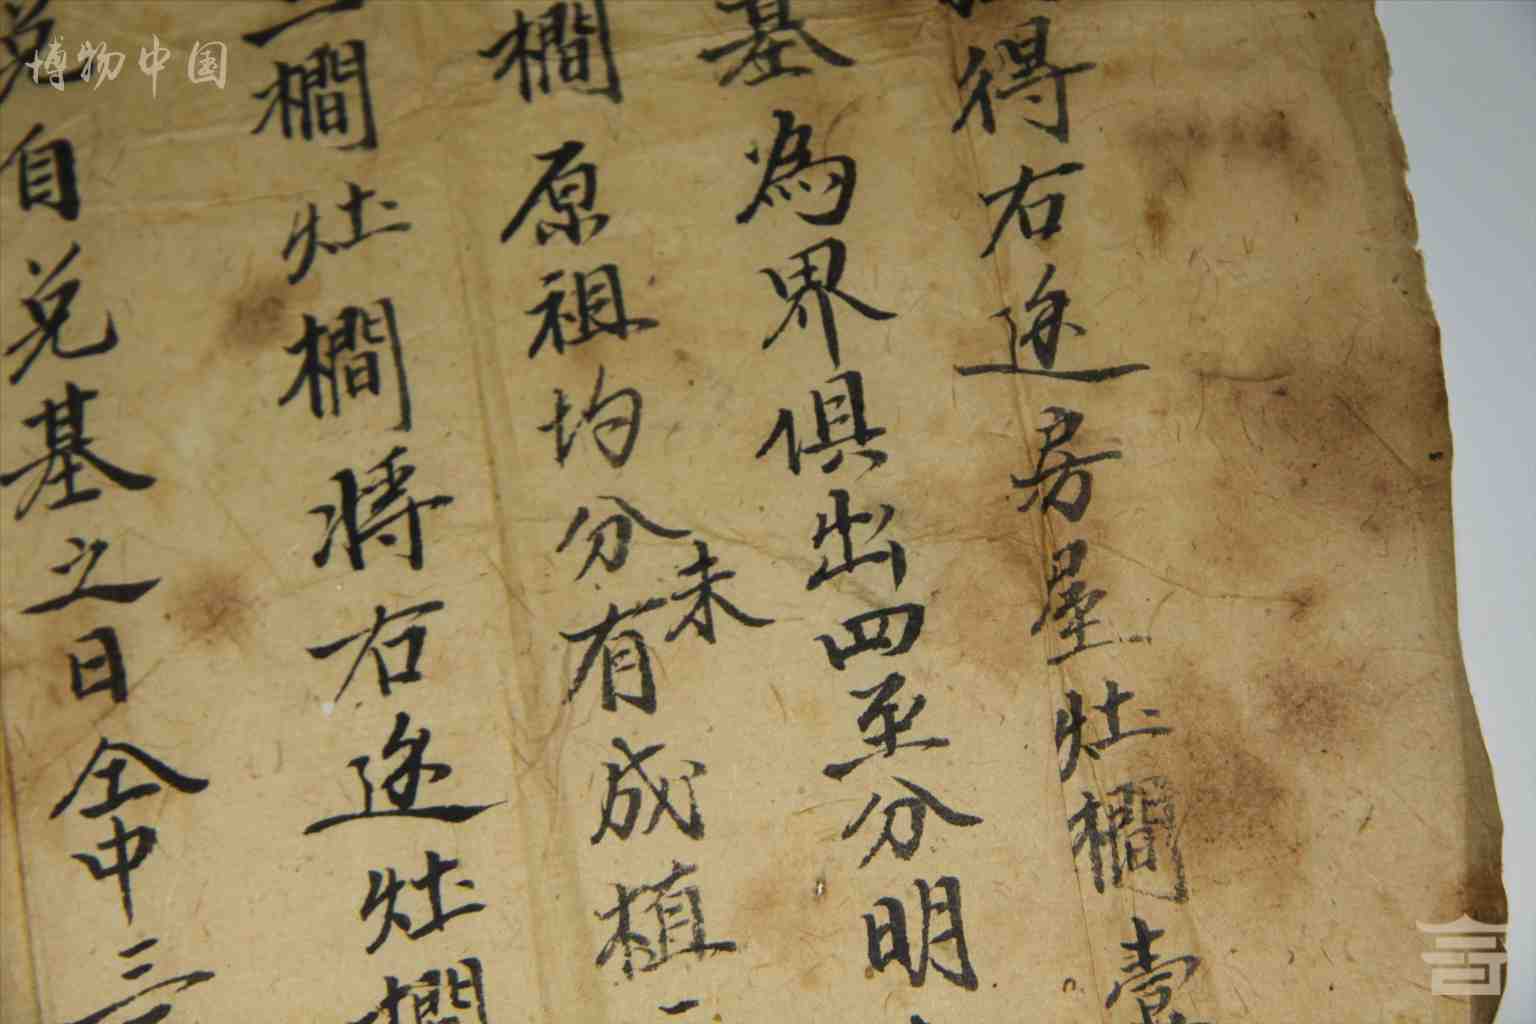 博物中国
得右迩房屋灶橺壹
基為界俱出四至分明
橺原祖均分未有成植
橺灶橺将右迩灶橺
自兑基之日仝中三